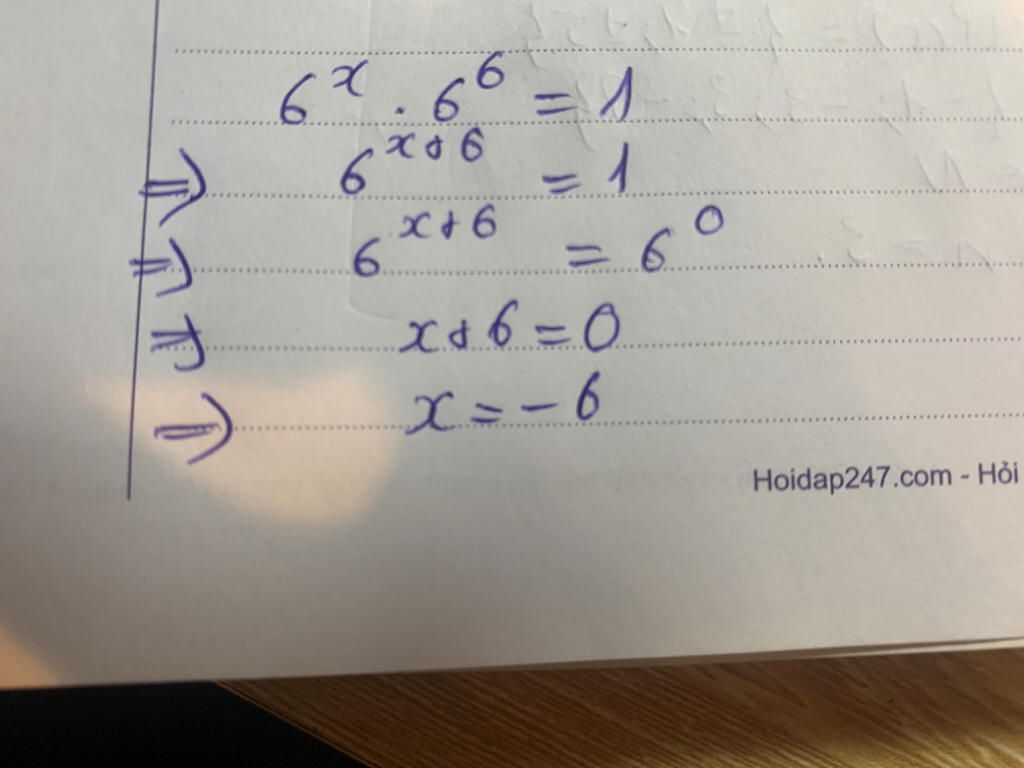 6^x . 6^6 = 1
=> 6^{x+6} = 1
=> 6^{x+6} = 6^0
=> x+6 = 0
=> x = -6
Hoidap247.com - Hỏi